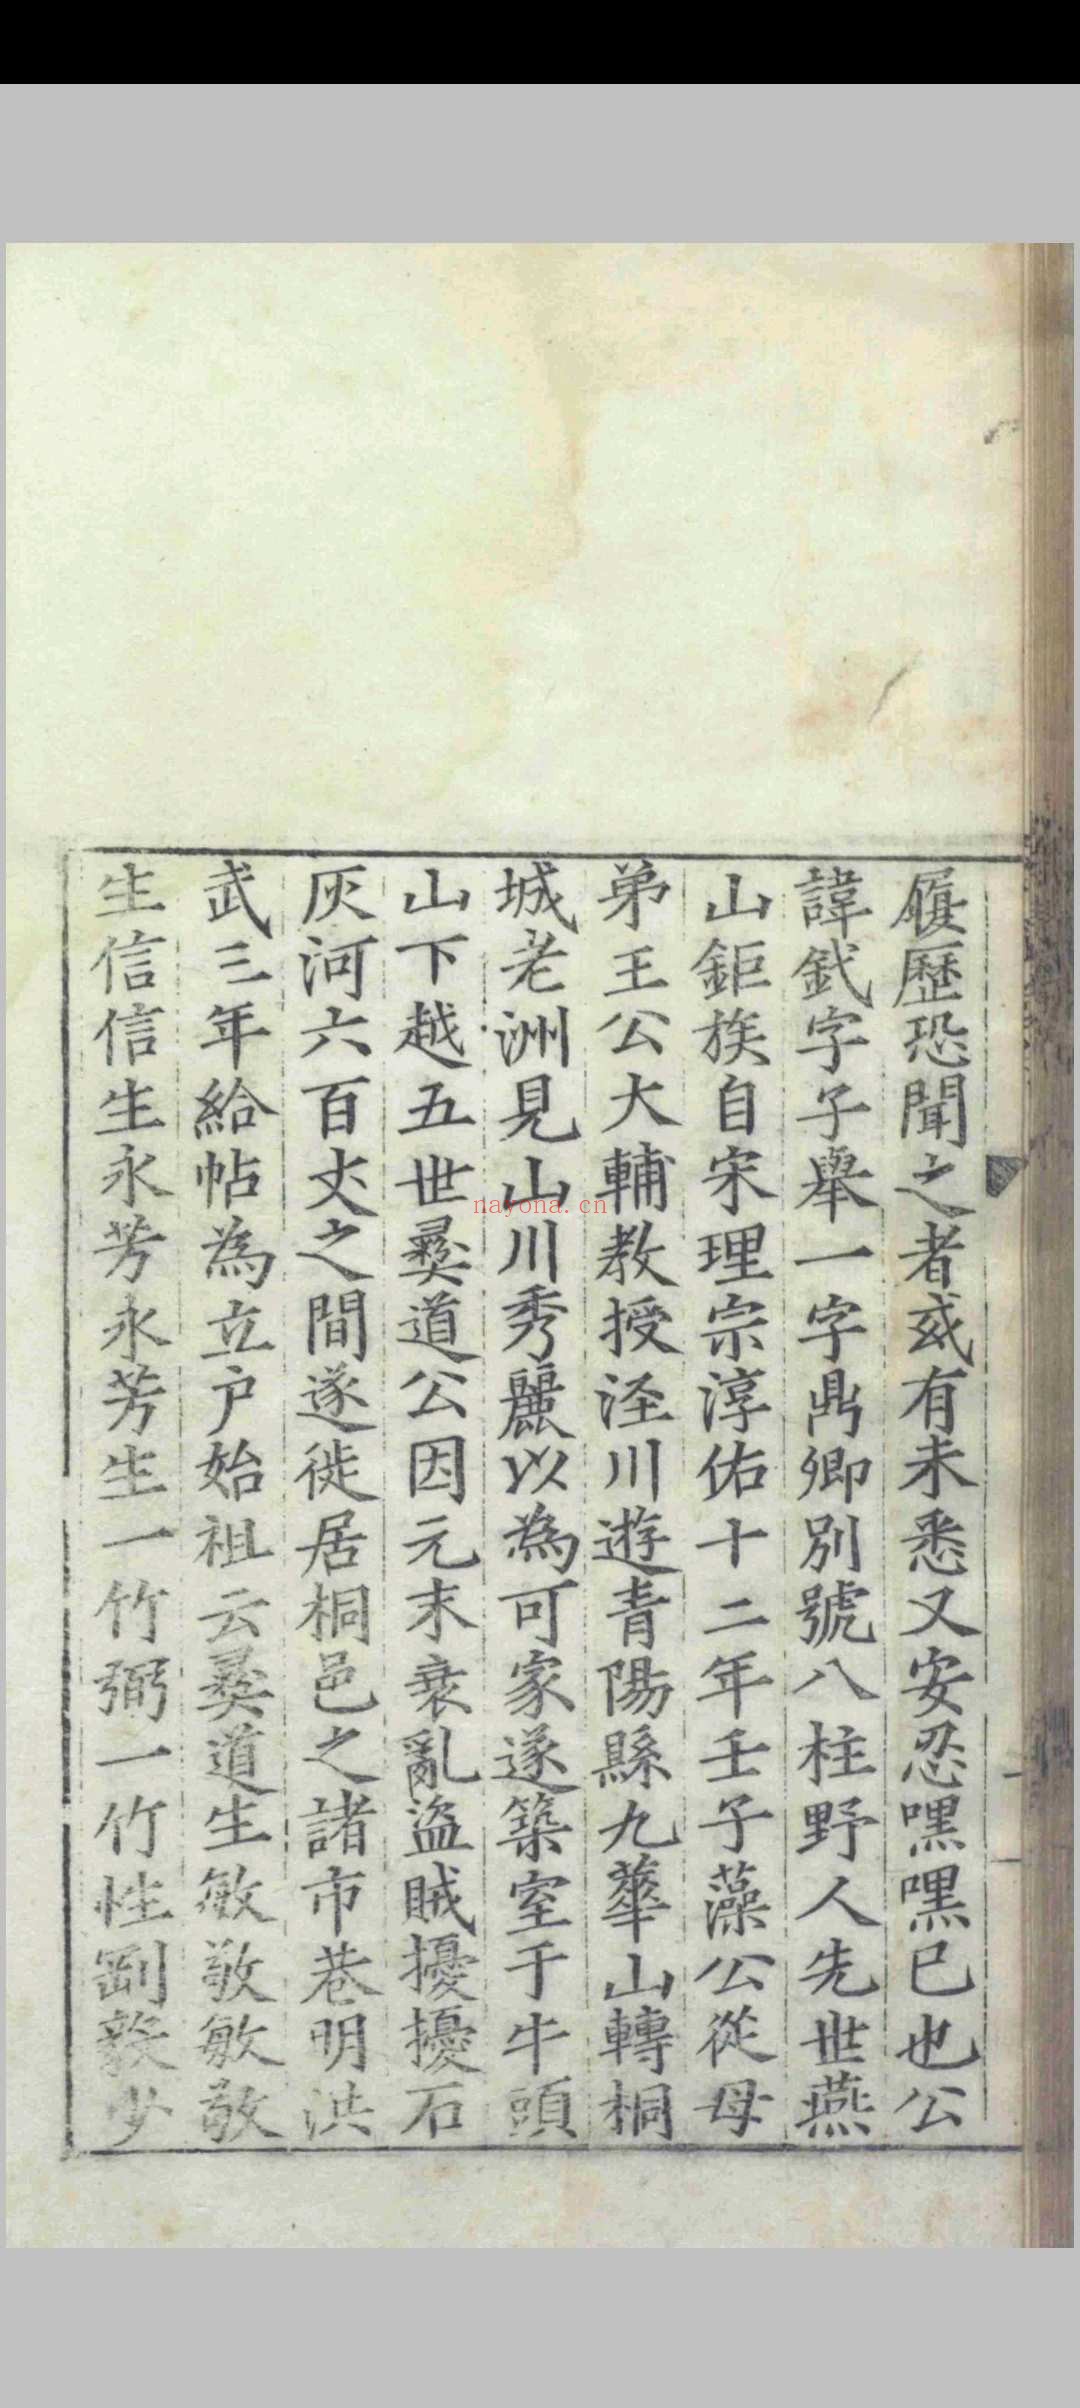 履歷恐聞之者或有未悉又安忍嘿嘿已也公
諱釴字子舉一字鼎卿別號八柱野人先世燕
山鉅族自宋理宗淳佑十二年壬子藻公從母
弟王公大輔教授泾川遊青陽縣九華山轉桐
城老洲見山川秀麗以為可家遂築室于牛頭
山下越五世彞道公因元末衰亂盜賊擾擾石
灰河六百丈之間遂徙居桐邑之諸市巷明洪
武三年給帖為立户始祖云彞道生敏敬敏敬
生信信生永芳永芳生一竹弼一竹性剛毅少
nayona.cn